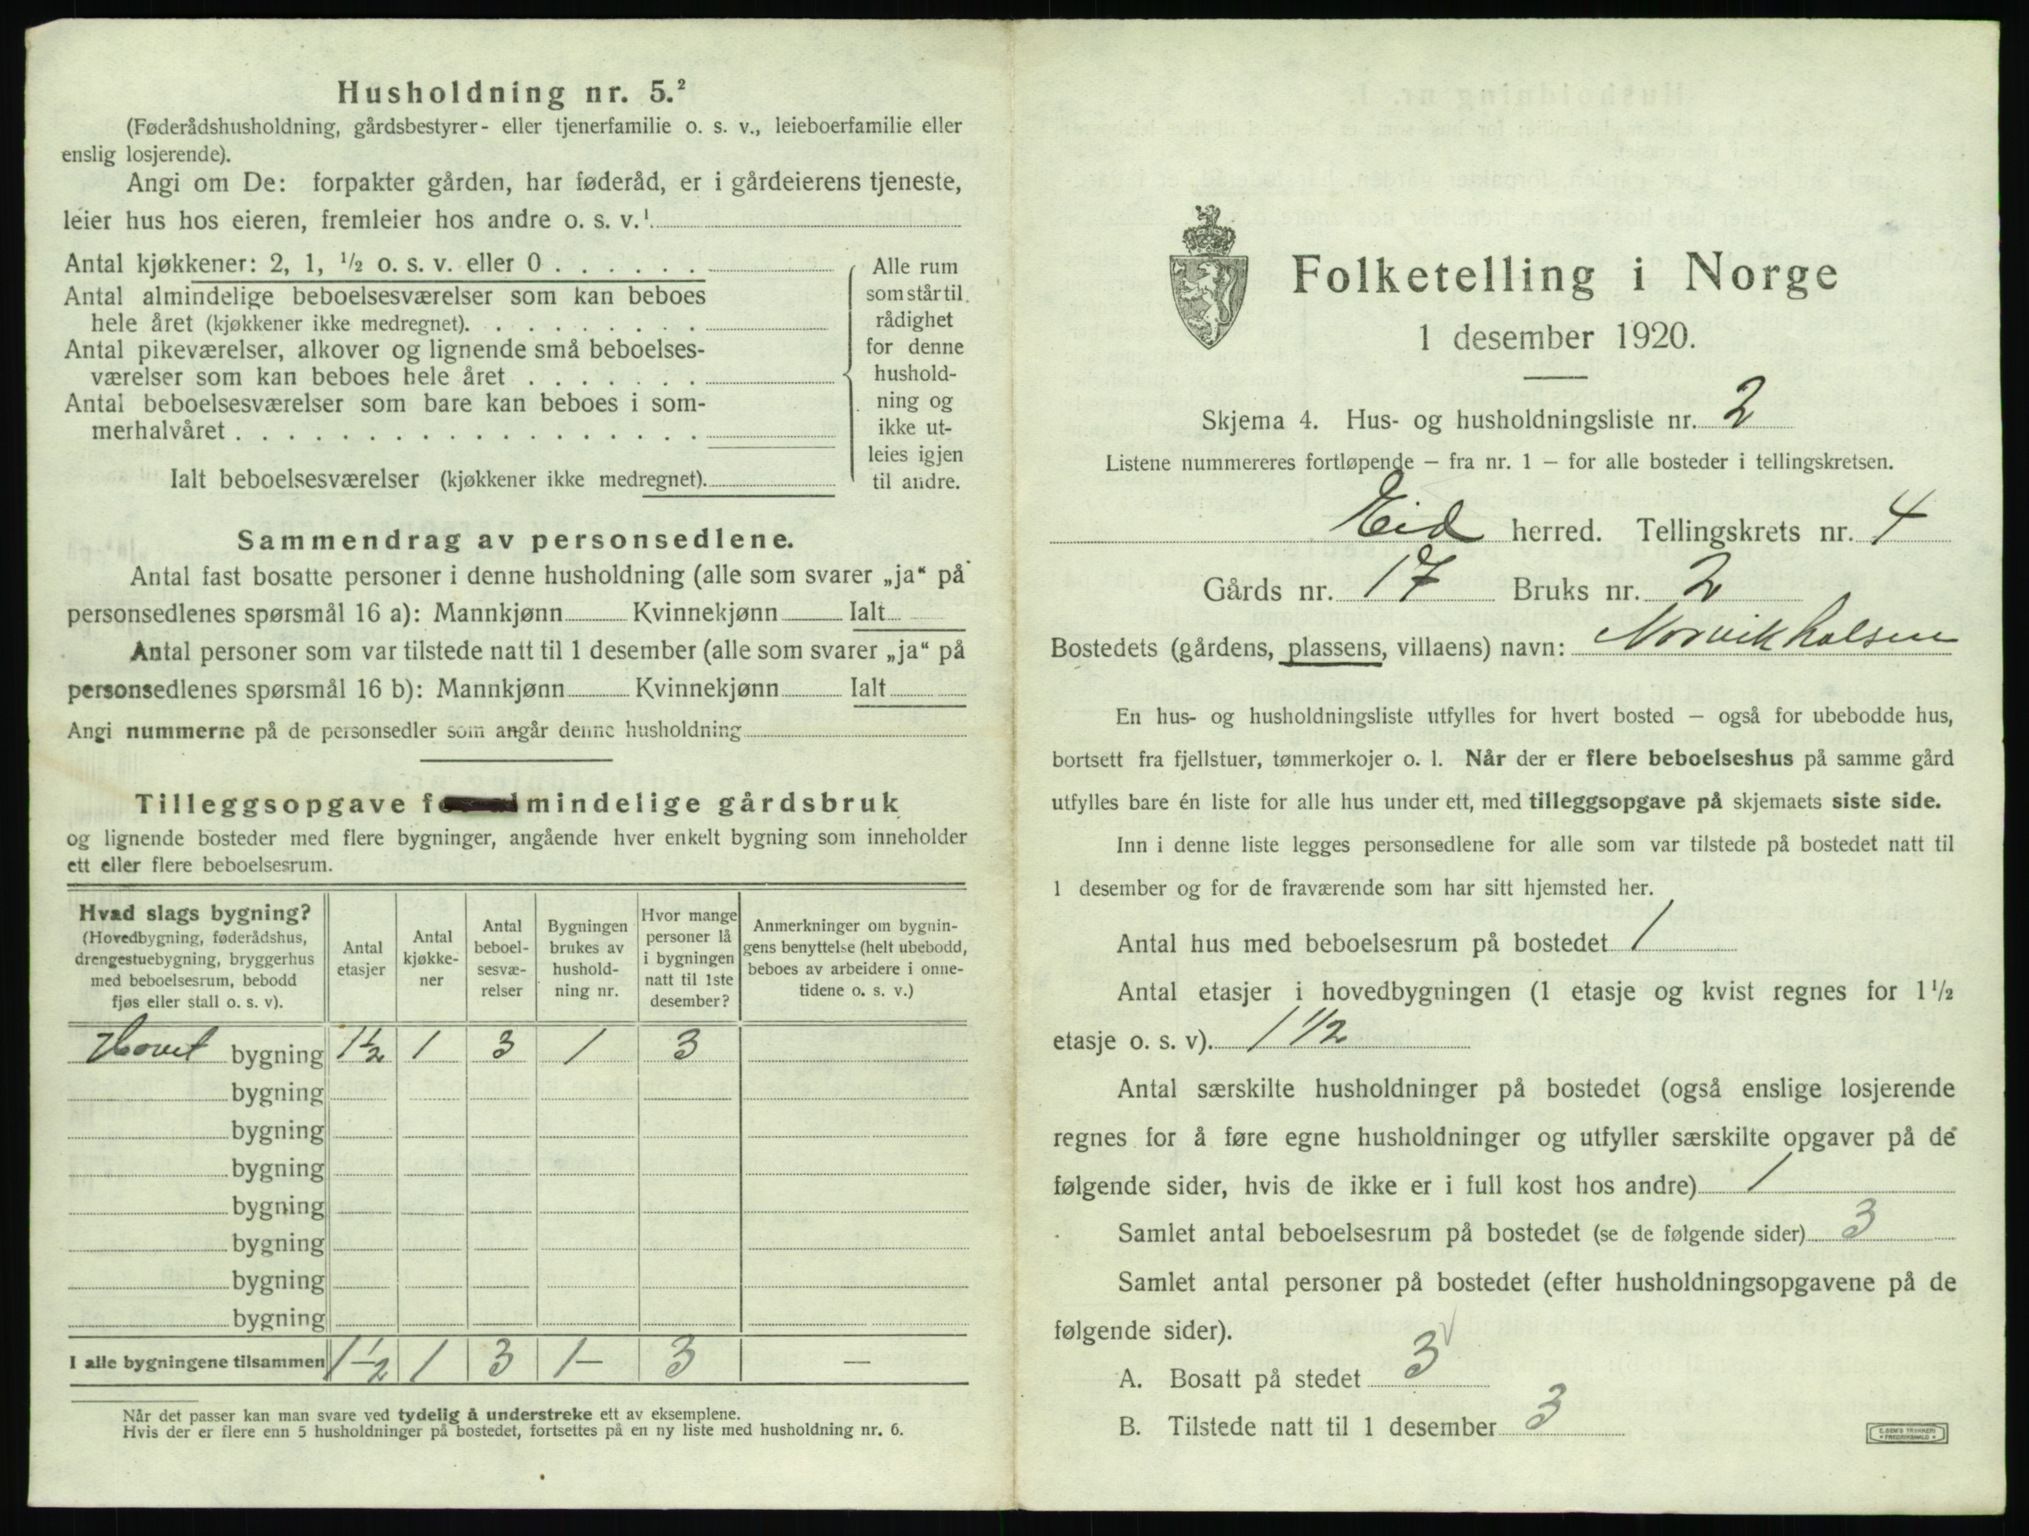 Husholdning nr. 5.²
(Føderådshusholdning, gårdsbestyrer- eller tjenerfamilie o. s. v., leieboerfamilie eller
enslig losjerende).
Angi om De: forpakter gården, har føderåd, er i gårdeierens tjeneste,
leier hus hos eieren, fremleier hos andre o. s. v.¹
Antal kjøkkener: 2, 1, ½ o. s. v. eller 0 . . . . . .
Antal almindelige beboelsesværelser som kan beboes
hele året (kjøkkener ikke medregnet). . . . . . . . .
Antal pikeværelser, alkover og lignende små beboelses-
værelser som kan beboes hele året . . . . . . .
Antal beboelsesværelser som bare kan beboes i som-
merhalvåret . . . . . . . . . . . . . . . . . .
Ialt beboelsesværelser (kjøkkener ikke medregnet).
Alle rum
som står til
rådighet
for denne
hushold-
ning og
ikke ut-
leies igjen
til andre.
Sammendrag av personsedlene.
Antal fast bosatte personer i denne husholdning (alle som svarer „ja“ på
personsedlenes spørsmål 16 a): Mannkjønn Kvinnekjønn Ialt
Antal personer som var tilstede natt til 1 desember (alle som svarer „ja“ på
personsedlenes spørsmål 16 b): Mannkjønn Kvinnekjønn Ialt
Angi nummerne på de personsedler som angår denne husholdning
Tilleggsopgave f mindelige gårdsbruk
og lignende bosteder med flere bygninger, angående hver enkelt bygning som inneholder
ett eller flere beboelsesrum.
Hvad slags bygning?
(Hovedbygning, føderådshus,
drengestuebygning, bryggerhus
med beboelsesrum, bebodd
fjøs eller stall o. s. v).
Antal
etasjer
Antal
kjøkke-
ner
Antal
beboel-
sesvæ-
relser
Bygningen
brukes av
hushold-
ning nr.
Hvor mange
personer lå
i bygningen
natt til 1ste
desember?
Anmerkninger om bygnin-
gens benyttelse (helt ubebodd,
beboes av arbeidere i onne-
tidene o. s. v.)
Hovet bygning 1½ 1 3 1 3
bygning
bygning
bygning
bygning
bygning
bygning
bygning
I alle bygningene tilsammen 1½ 1 3 1- 3 —
Når det passer kan man svare ved tydelig å understreke ett av eksemplene.
Hvis der er flere enn 5 husholdninger på bostedet, fortsettes på en ny liste med husholdning nr. 6.
Folketelling i Norge
1 desember 1920.
Skjema 4. Hus- og husholdningsliste nr. 2
Listene nummereres fortløpende — fra nr. 1 — for alle bosteder i tellingskretsen.
Eid herred. Tellingskrets nr. 4
Gårds nr. 17 Bruks nr. 2
Bostedets (gårdens, plassens, villaens) navn: Norvikholsen
En hus- og husholdningsliste utfylles for hvert bosted — også for ubebodde hus,
bortsett fra fjellstuer, tømmerkojer o. l. Når der er flere beboelseshus på samme gård
utfylles bare én liste for alle hus under ett, med tilleggsopgave på skjemaets siste side.
Inn i denne liste legges personsedlene for alle som var tilstede på bostedet natt til
1 desember og for de fraværende som har sitt hjemsted her.
Antal hus med beboelsesrum på bostedet 1
Antal etasjer i hovedbygningen (1 etasje og kvist regnes for 1½
etasje o. s. v). 1 1/2
Antal særskilte husholdninger på bostedet (også enslige losjerende
regnes for å føre egne husholdninger og utfyller særskilte opgaver på de
følgende sider, hvis de ikke er i full kost hos andre) 1
Samlet antal beboelsesrum på bostedet (se de følgende sider) 3
Samlet antal personer på bostedet (efter husholdningsopgavene på de
følgende sider).
A. Bosatt på stedet 3
B. Tilstede natt til 1 desember 3